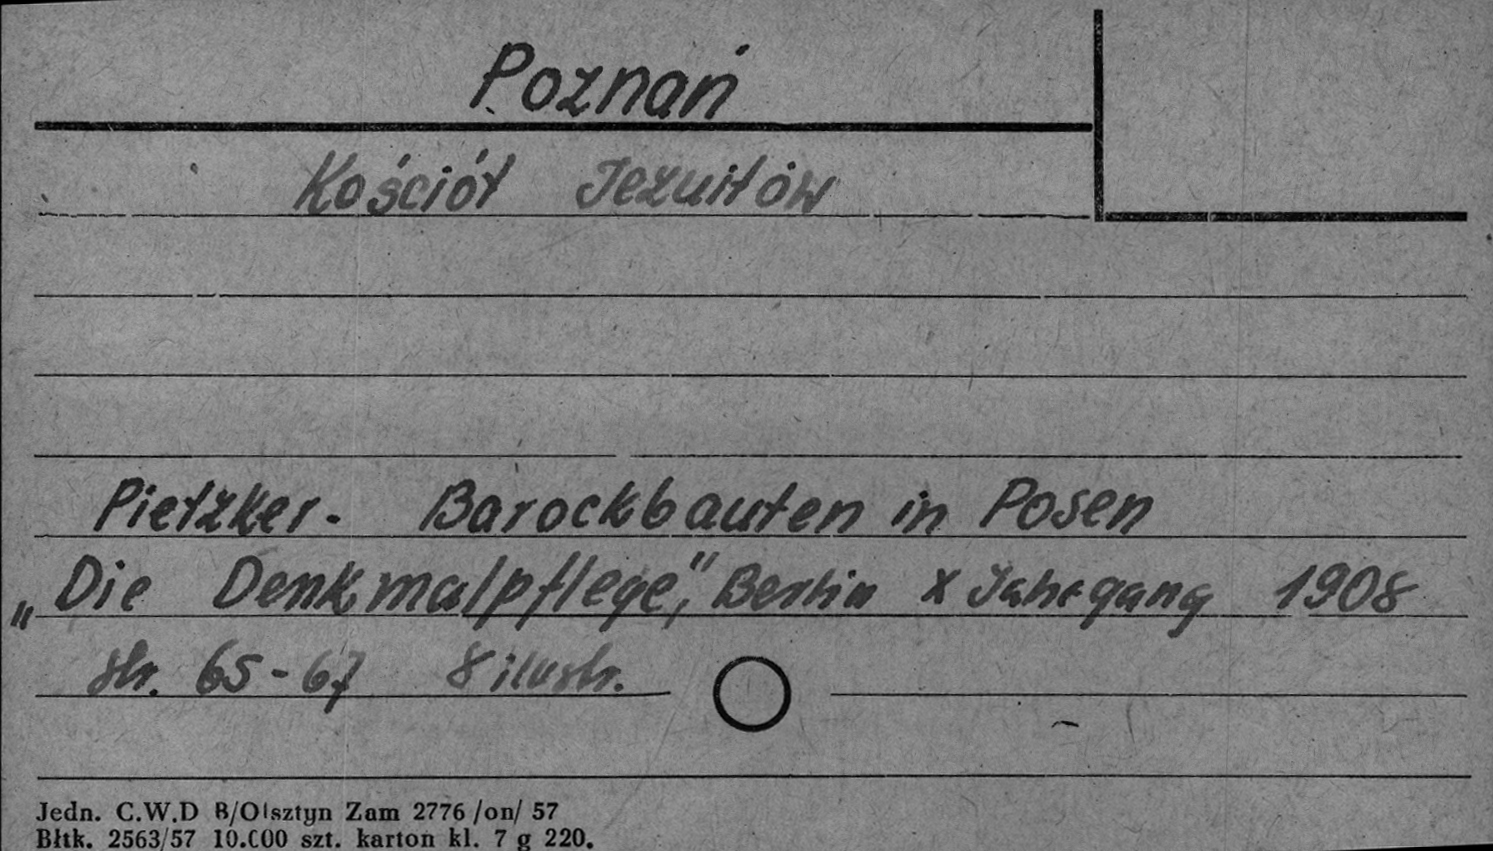 Poznań
Kościół Jezuitów
Pietzker. Barockbauten in Posen
„Die Denkmalpflege", Berlin X Jahrgang 1908
str. 65-67 8 ilustr.
Jedn. C.W.D B/Olsztyn Zam 2776 /on/ 57
Błtk. 2563/57 10.000 szt. karton kl. 7 g 220.